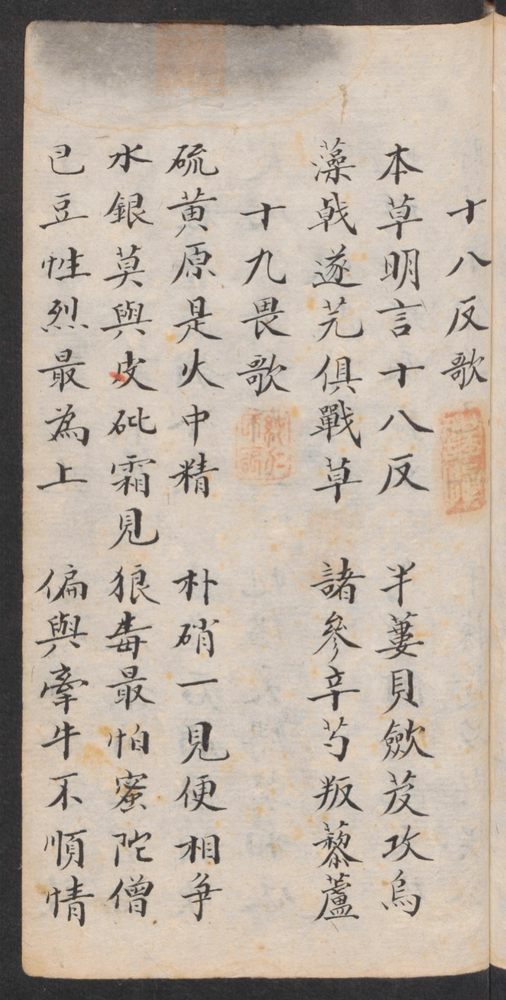 十八反歌
本草明言十八反　半蔞貝斂芨攻烏
藻戟遂芫俱戰草　諸參辛芍叛藜蘆
十九畏歌
硫黄原是火中精　朴硝一見便相争
水銀莫與皮砒霜見　狼毒最怕蜜陀僧
巴豆性烈最為上　偏與牽牛不順情